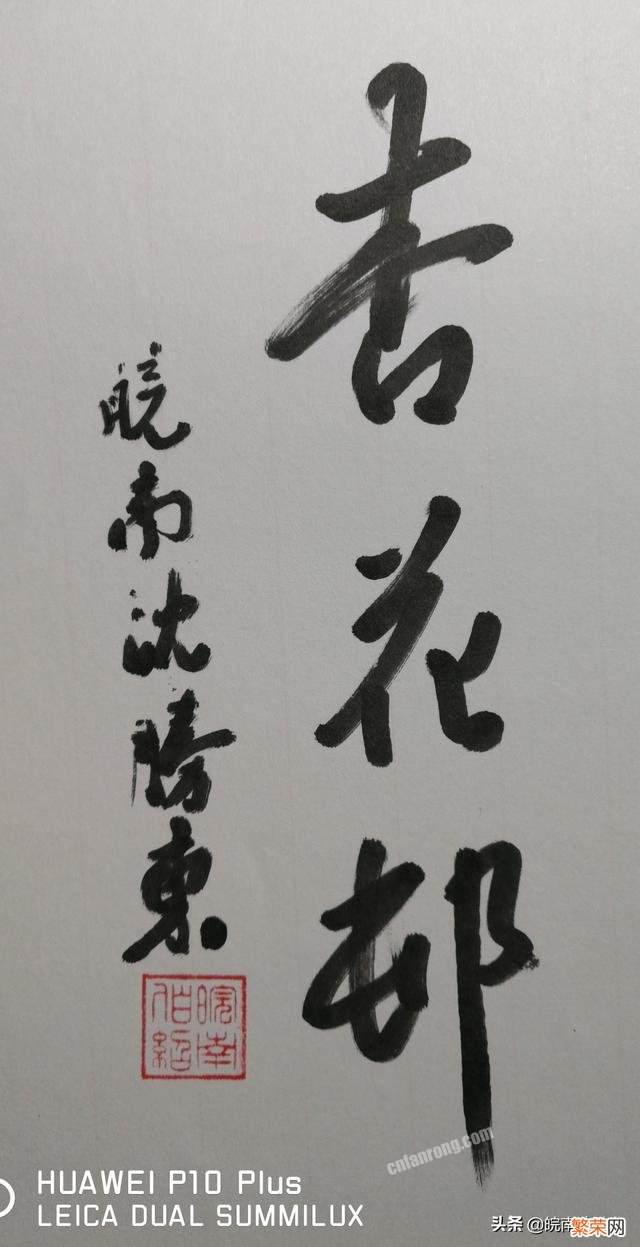 杏花邨
皖南沈勝東
皖南
伯紹
cnfanrong.com
HUAWEI P10 Plus
LEICA DUAL SUMMILUX
头条 @皖南
繁荣网